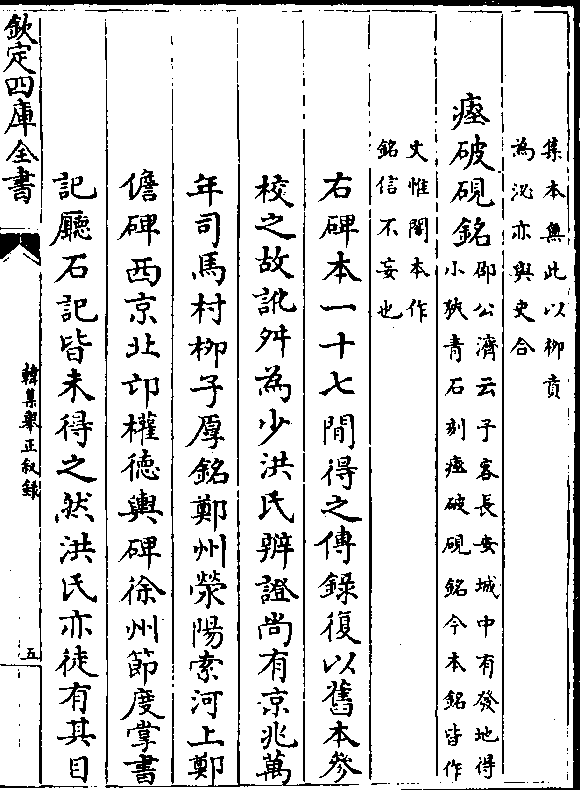 集本無此以柳賁
為泌亦與史合
瘞破硯銘
邵公濟云子客長安城中有發地得
小㼽青石刻瘞破硯銘今本銘皆作
史惟閣本作
銘信不妄也
右碑本一十七間得之傳錄復以舊本參
校之故訛舛為少洪氏辨證尚有京兆萬
年司馬村柳子厚銘鄭州滎陽索河上鄭
儋碑西京北邙權德輿碑徐州節度掌書
記廳石記皆未得之然洪氏亦徒有其目
欽定四庫全書
韓集舉正叙錄
五